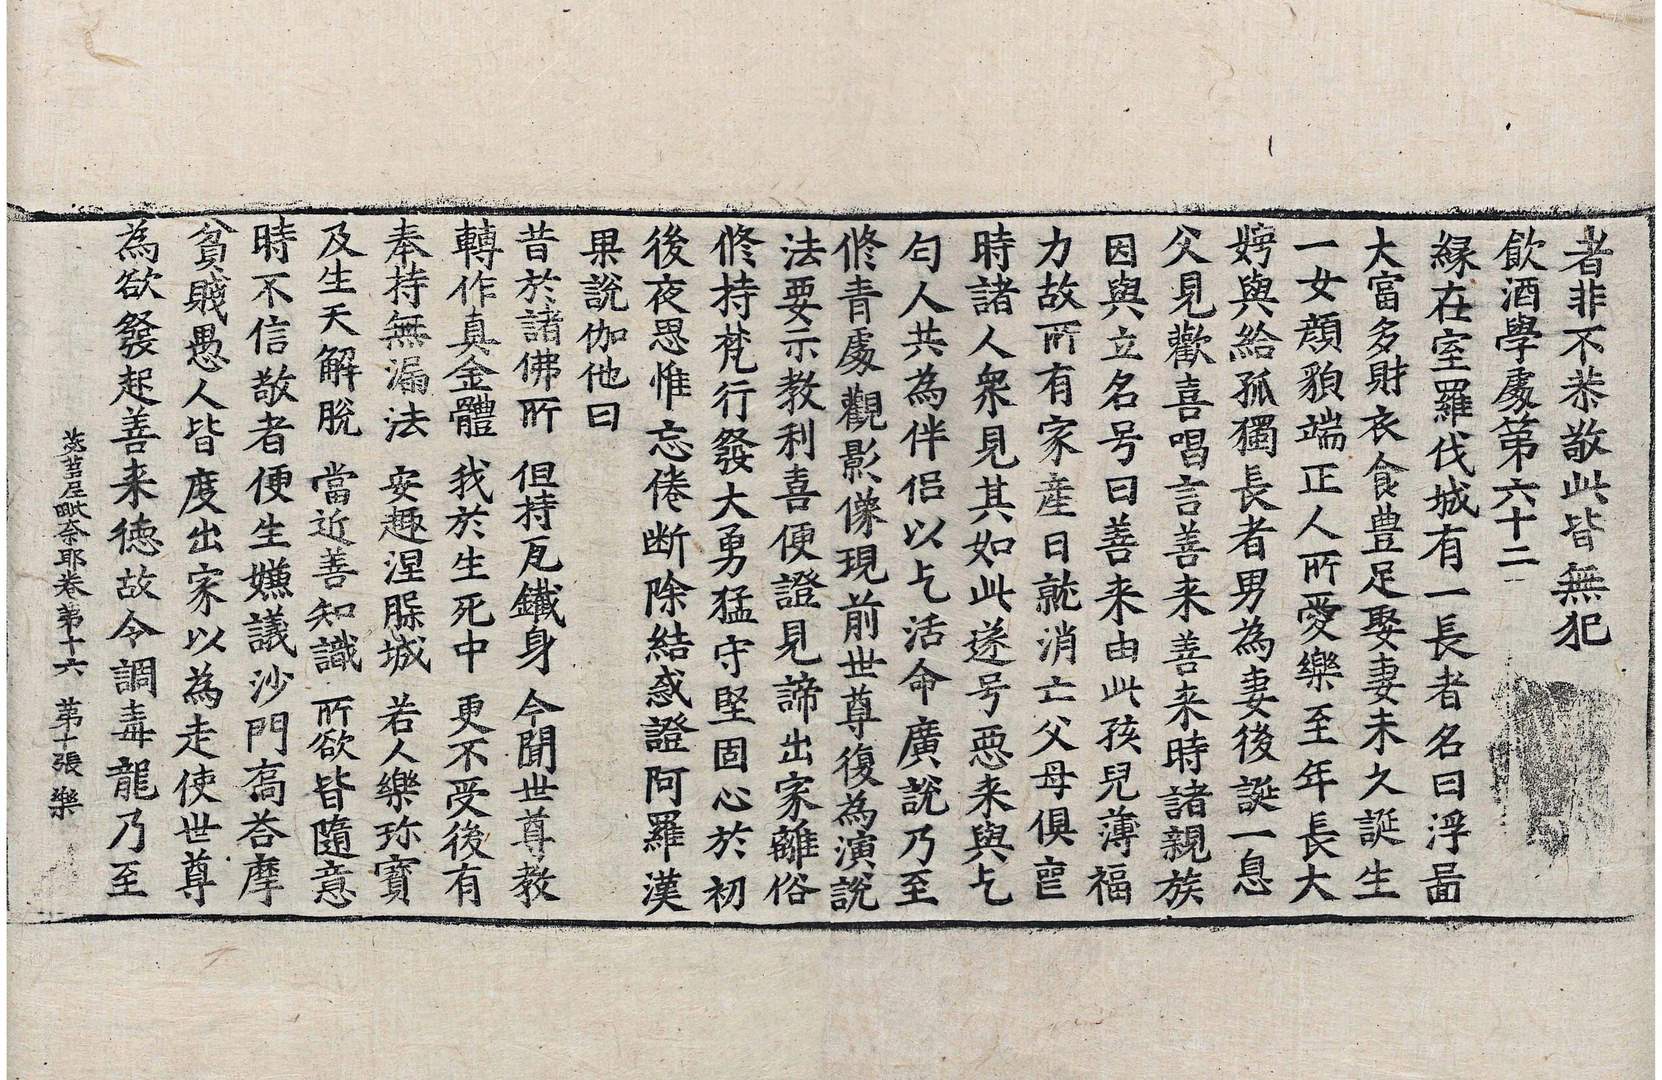 者非不恭敬此皆無犯
飲酒學處第六十二
緣在室羅伐城有一長者名曰浮啚
大富多財衣食豊足娶妻未久誕生
一女顔䫉端正人所愛樂至年長大
娉與給孤獨長者男為妻後誕一息
父見歡喜唱言善来善来時諸親族
因與立名号曰善来由此孩兒薄福
力故所有家産日就消亡父母俱䘮
時諸人衆見其如此遂号惡来與乞
匃人共為伴侣以乞活命廣說乃至
修青處觀影像現前世尊復為演說
法要示教利喜便證見諦出家離俗
修持梵行發大勇猛守堅固心於初
後夜思惟忘倦断除結惑證阿羅漢
果說伽他曰
昔於諸佛所　但持瓦鐵身　今聞世尊教
轉作真金體　我於生死中　更不受後有
奉持無漏法　安趣涅槃城　若人樂珎寶
及生天解脫　當近善知識　所欲皆隨意
時不信敬者便生嫌議沙門喬荅摩
貧賎愚人皆度出家以為走使世尊
為欲發起善来德故令調毒龍乃至
苾蒭尼毗奈耶卷第十六　第十張　樂